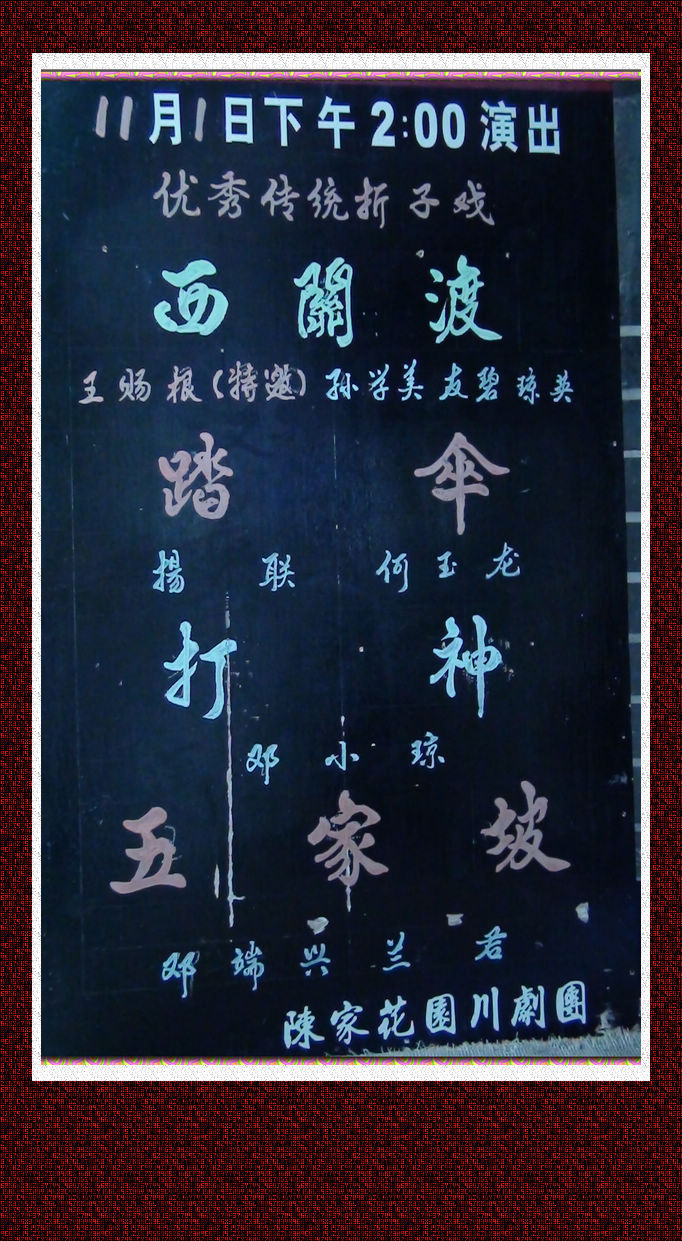 11月1日下午2:00演出
优秀传统折子戏
西關渡
王赐根(特邀)孙学美友碧琼英
踏伞
揚联 何玉龙
打神
邓小琼
五家坡
邓端兴兰君
陳家花園川劇團